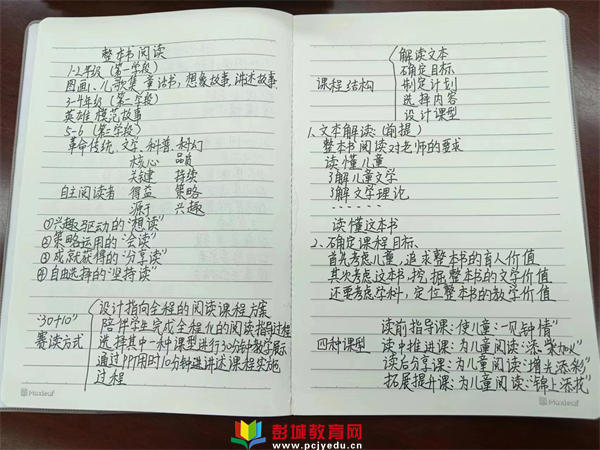 整本书阅读
1-2年级（第一学段）
图画、儿歌集、童话书，想象故事，讲述故事.
3-4年级（第二学段）
英雄模范故事
5-6（第三学段）
革命传统、文学、科普、科幻
核心 品质
关键 持续
自主阅读者 得益 策略
源于 兴趣
①兴趣驱动的“想读”
②策略运用的“会读”
③成就获得的“分享读”
④自由选择的“坚持读”
“30+10”
赛读方式
设计指向全程的阅读课程方案
陪伴学生完成全程化的阅读指导过程
选择其中一种课型进行30分钟教学展示
通过PPT用时10分钟进讲述课程实施
过程
Maxleaf
课程结构
解读文本
确定目标
制定计划
选择内容
设计课型
1、文本解读：（前提）
整本书阅读对老师的要求
读懂儿童
了解儿童文学
了解文学理论
------
读懂这本书
2、确定课程目标.
首先考虑儿童，追求整本书的育人价值
其次考虑这本书，挖掘整本书的文学价值
还要考虑学科，定位整本书的教学价值
四种课型
读前指导课：使儿童：“一见钟情”
读中推进课：为儿童阅读：“添柴加火”
读后分享课：为儿童阅读：“增光添彩”
拓展提升课：为儿童阅读：“锦上添花”
Maxleaf
彭城教育网
www.pcjyedu.cn